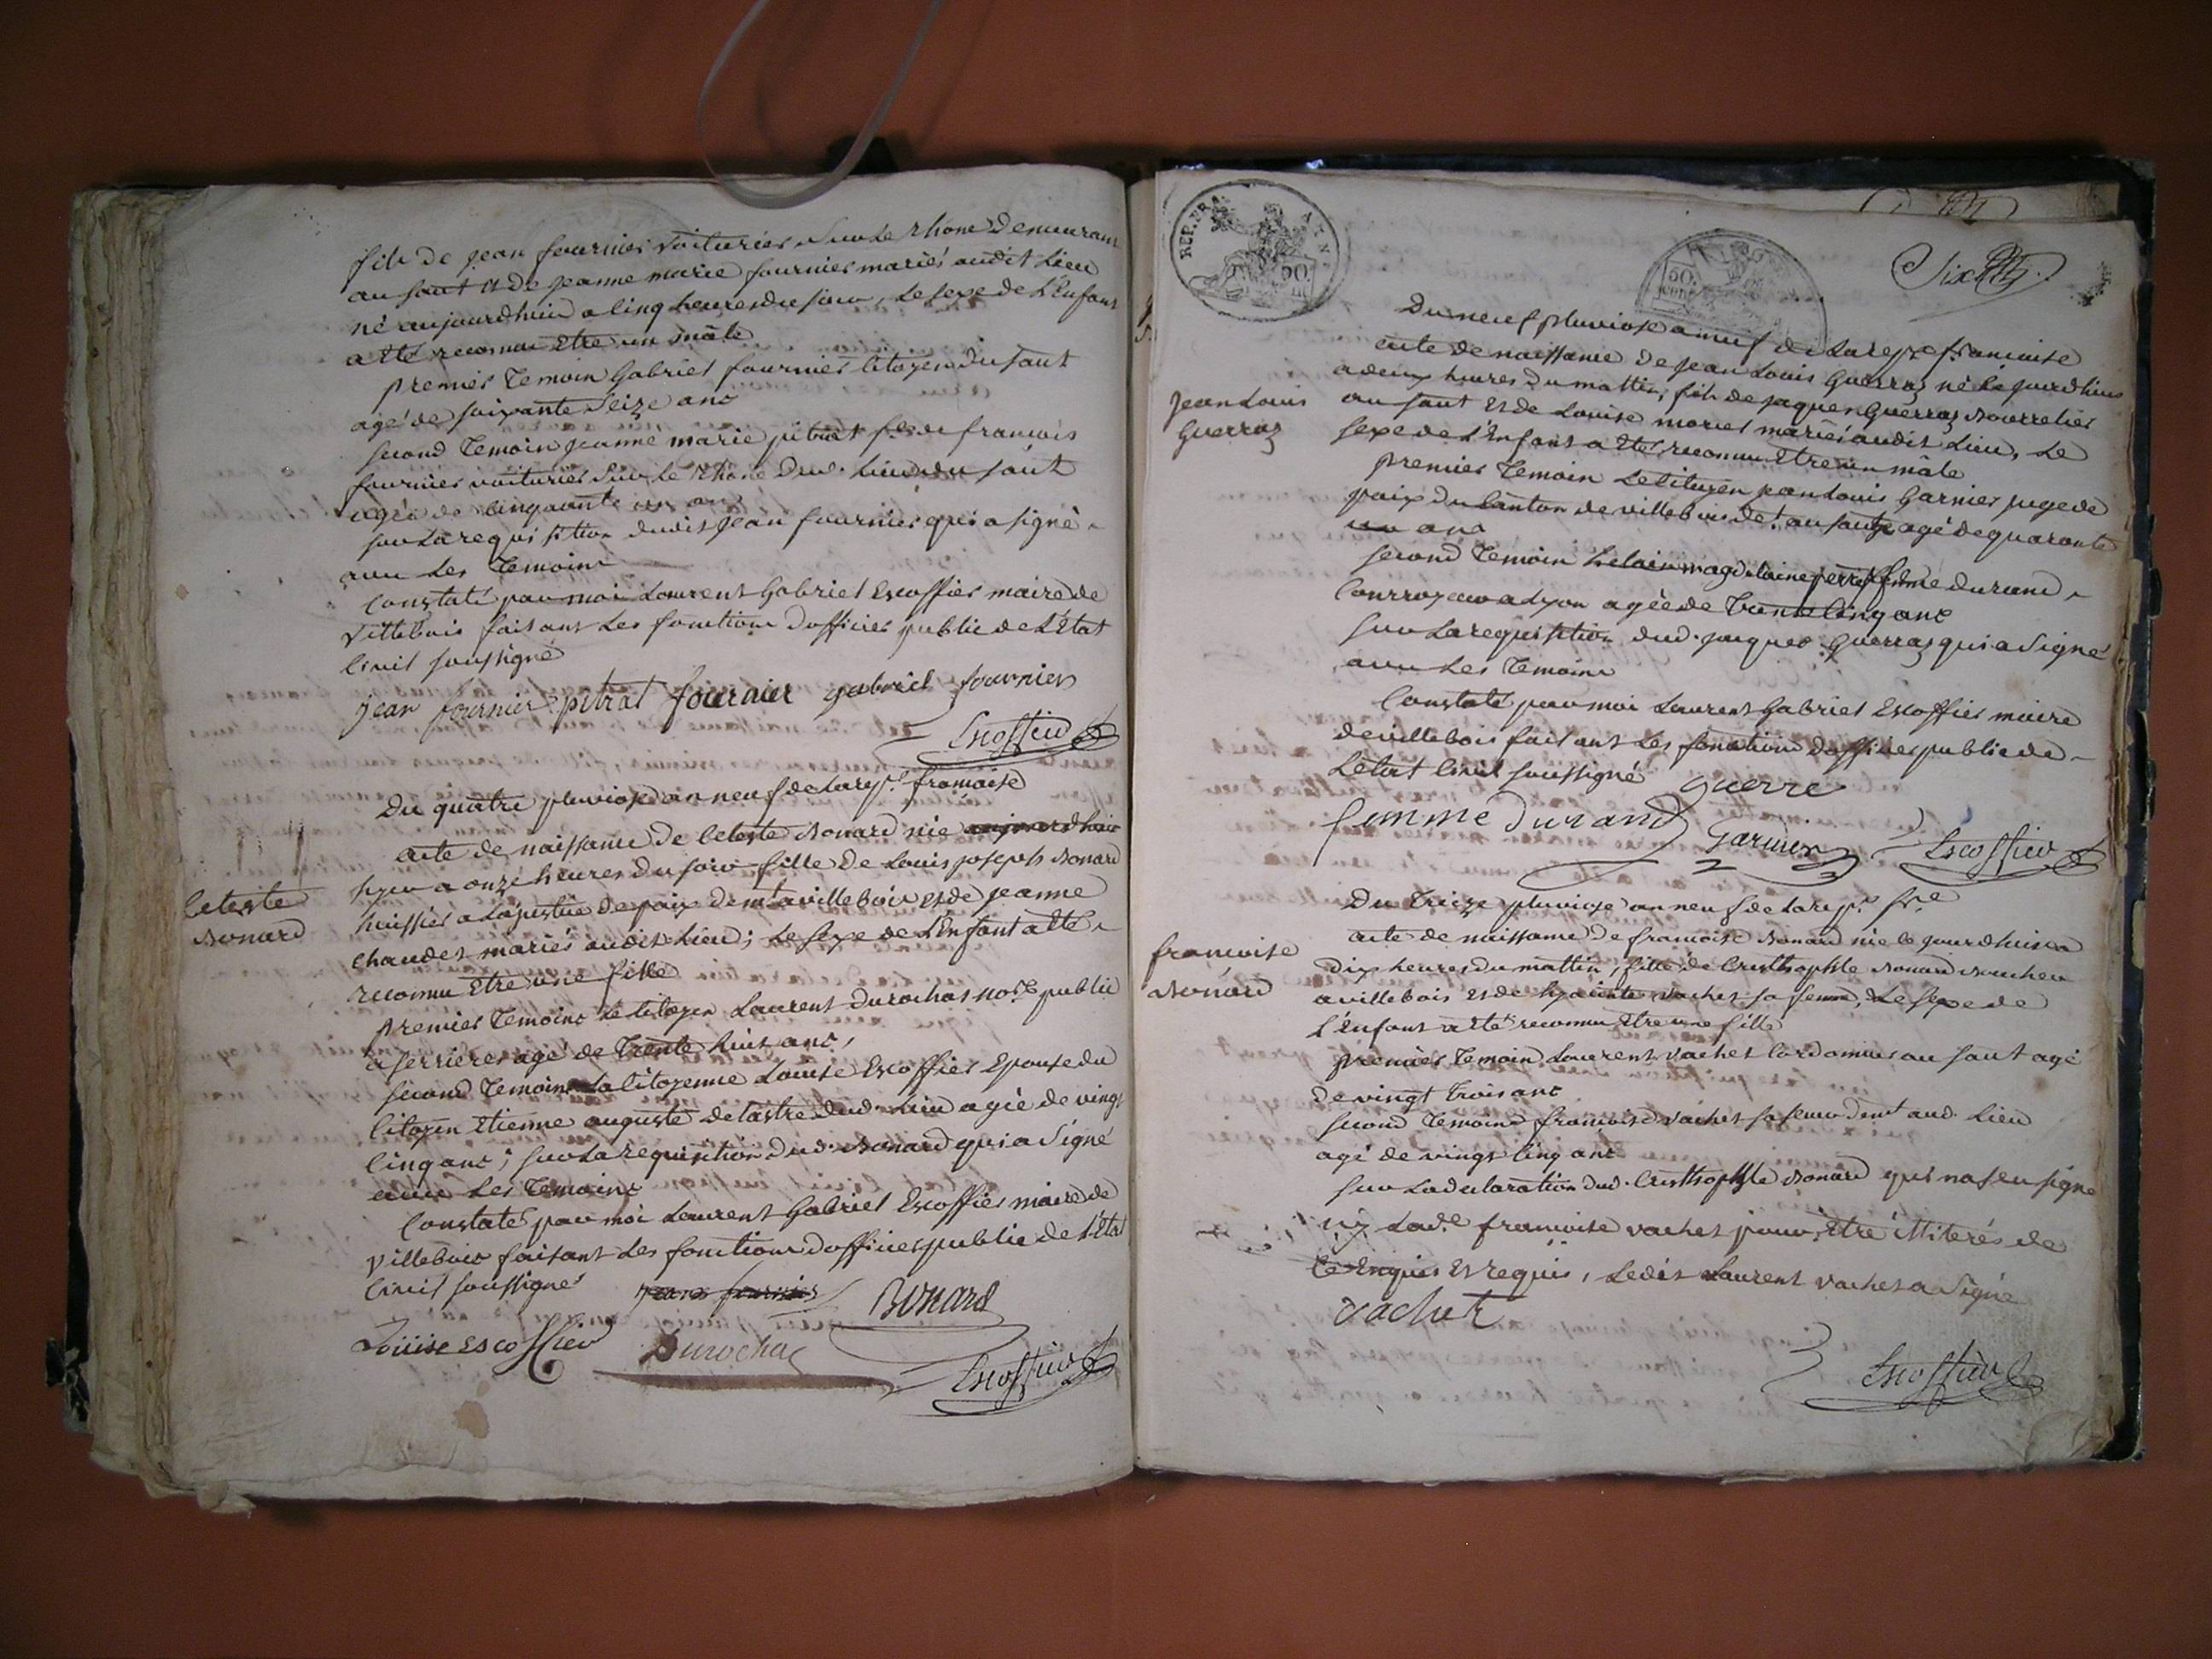 fils de jean fournier voiturier sur le rhone demeurant
au saut et de jeanne marie fournier mariés audit lieu
né aujourdhuie a cinq heures du soir, le sexe de l'Enfant
a Eté reconnu Etre un mâle
premier Temoin Gabriel fournier citoyen du saut
agé de soixante seize ans
second Temoin jeanne marie pitrat f.e de francois
fournier voiturier sur le rhone dud. lieu du saut
agée de cinquante un ans
sur la requisition dudit jean fournier qui a signé
avec Les Temoins
Constaté par moi Laurent Gabriel Escoffier maire de
villebois faisant Les fonctions d'officier public de L'Etat
civil soussigné
jean fournier pitrat fournier gabriel fournier
Escoffier
Du quatre pluviose an neuf de La rep.e francaise
acte de naissance de Celeste Bonard née aujourdhuie
hyer a onze heures du soir fille de Louis joseph Bonard
Celeste
Bonard
huissier a La justice de paix dem.t a villebois et de jeanne
chaudet mariés audit lieu; Le sexe de L'Enfant a Eté
reconnu Etre une fille
premier Temoins Le Citoyen Laurent Durochat no.re public
a serrieres agé de Trente huit ans,
second Temoins La Citoyenne Louise Escoffier Epouse du
Citoyen Etienne auguste delastre dud. lieu agée de vingt
cinq ans; sur La requisition dud. Bonard qui a signé
avec Les Temoins
Constaté par moi Laurent Gabriel Escoffier maire de
villebois faisant Les fonctions d'officier public de L'Etat
civil soussigné jean fournier Bonard
Louise escoffier Durochat
Escoffier
REP. FRA
50.
cent
Six
Du neuf pluviose an neuf de La rep.e francaise
acte de naissance de jean Louis Guerraz né ce jourdhuie
a deux heures du mattin, fils de jaques Guerraz Bourrelier
Jean Louis
Guerraz
au saut et de Louise moriel mariés audit Lieu, Le
sexe de L'Enfant a Eté reconnu Etre un mâle
premier Temoin Le Citoyen jean Louis Garnier juge de
paix du Canton de villebois de.t au saut agé de quarante
un ans
second Temoin magdelaine femme durand
Courroyeur a Lyon agée de Trente cinq ans
sur La requisition dud. jaques Guerraz qui a signé
avec Les Temoins
Constaté par moi Laurent Gabriel Escoffier maire
de villebois faisant Les fonctions d'officier public de
L'Etat civil soussigné guerre
femme durand Garnier Escoffier
Du Treize pluviose an neuf de La rep.e fr.e
acte de naissance de francoise Bonard née ce jourdhuie a
francoise
Bonard
dix heures du mattin, fille de Cristhophle Bonard
a villebois et de hyacinte vachet sa femme, Le sexe de
L'Enfant a Eté reconnu Etre une fille
premier Temoin Laurent vachet Cordonnier au saut agé
de vingt Trois ans
second Temoins francoise vachet sa soeur dem.t aud. Lieu
agé de vingt cinq ans
sur La declaration dud. Cristhophle Bonard qui na seu signé
ny Lad.e francoise vachet pour Etre illiterés de
Ce Enquis et requis, Ledit Laurent vachet a signé
vachet
Escoffier